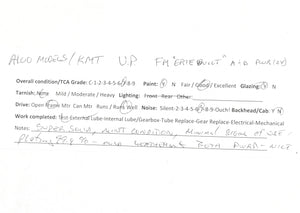 ALCO MODELS / KMT U.P FM "ERIE BUILT" A-B PWR/
Overall condition/TCA Grade: C-1-2-3-4-5-6-7-8-9 Paint: Y N Fair / Good / Excellent Glazing: Y N
Tarnish: None Mild / Moderate / Heavy Lighting: Front Rear Other
Drive: Open Frame Mtr Can Mtr Runs / Runs Well Noise: Silent-2-3-4-5-6-7-8-9-Ouch! Backhead/Cab: Y N
Work completed: Test External Lube-Internal Lube/Gearbox-Tube Replace-Gear Replace-Electrical-Mechanical
Notes: SUPER SOLID, MINT CONDITION, MINIMAL SIGNS OF USE
PLATING 99.9 % - BOTH PWRD - NICE